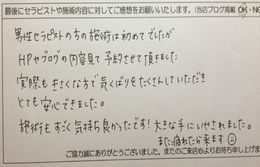 最後にセラピストや施術内容に対してご感想をお願いいたします。(当店ブログ掲載 OK・NO
男性セラピストの方の施術は初めてでしたが
HPやブログの内容見て予約させて頂きました
実際も きさくな方で気くばりをたくさんしていただき
とても安心できました。
施術もすごく気持ち良かったです!大きな手にいやされました。
また疲れたら来ます
ご協力誠にありがとうございました。またのご来店心よりお待ち申し上げま